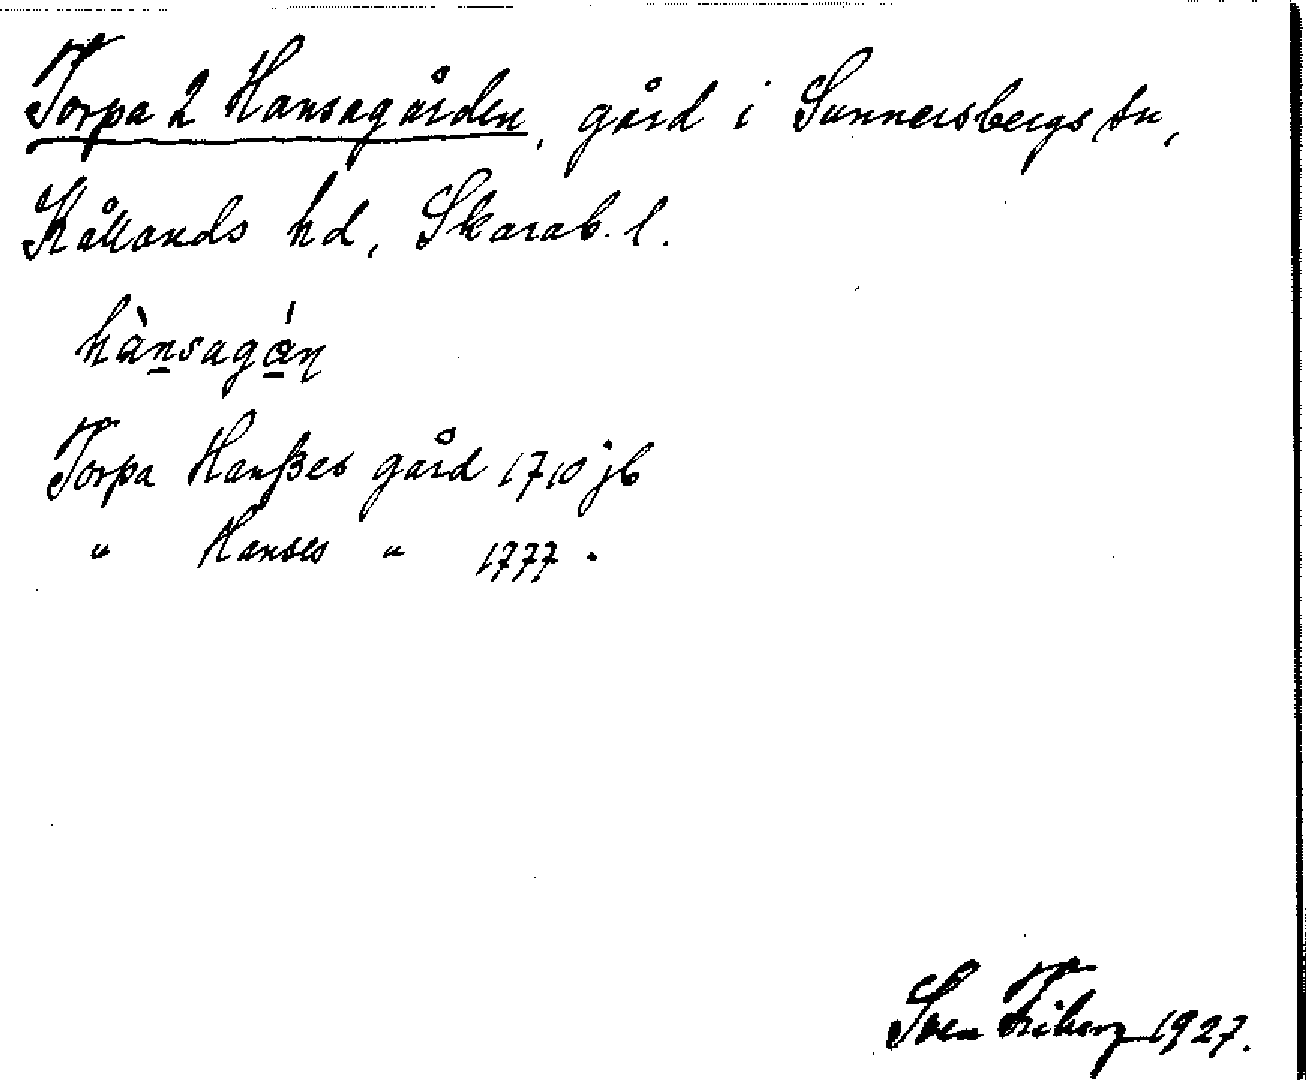 Torpa 2 Hansagården, gård i Sunnersbergs sn,
Kållands hd, Skarab. l.
hànsagán
Torpa Hanßes gård 1710 jb
" Hanses " 1777 "
Sven Friberg 1927.